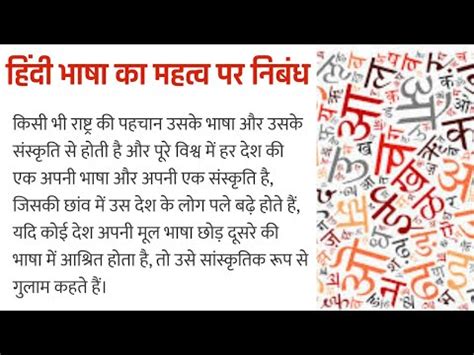 हिंदी भाषा का महत्व पर निबंध
किसी भी राष्ट्र की पहचान उसके भाषा और उसके
संस्कृति से होती है और पूरे विश्व में हर देश की
एक अपनी भाषा और अपनी एक संस्कृति है,
जिसकी छांव में उस देश के लोग पले बढ़े होते हैं,
यदि कोई देश अपनी मूल भाषा छोड़ दूसरे की
भाषा में आश्रित होता है, तो उसे सांस्कृतिक रूप से
गुलाम कहते हैं।